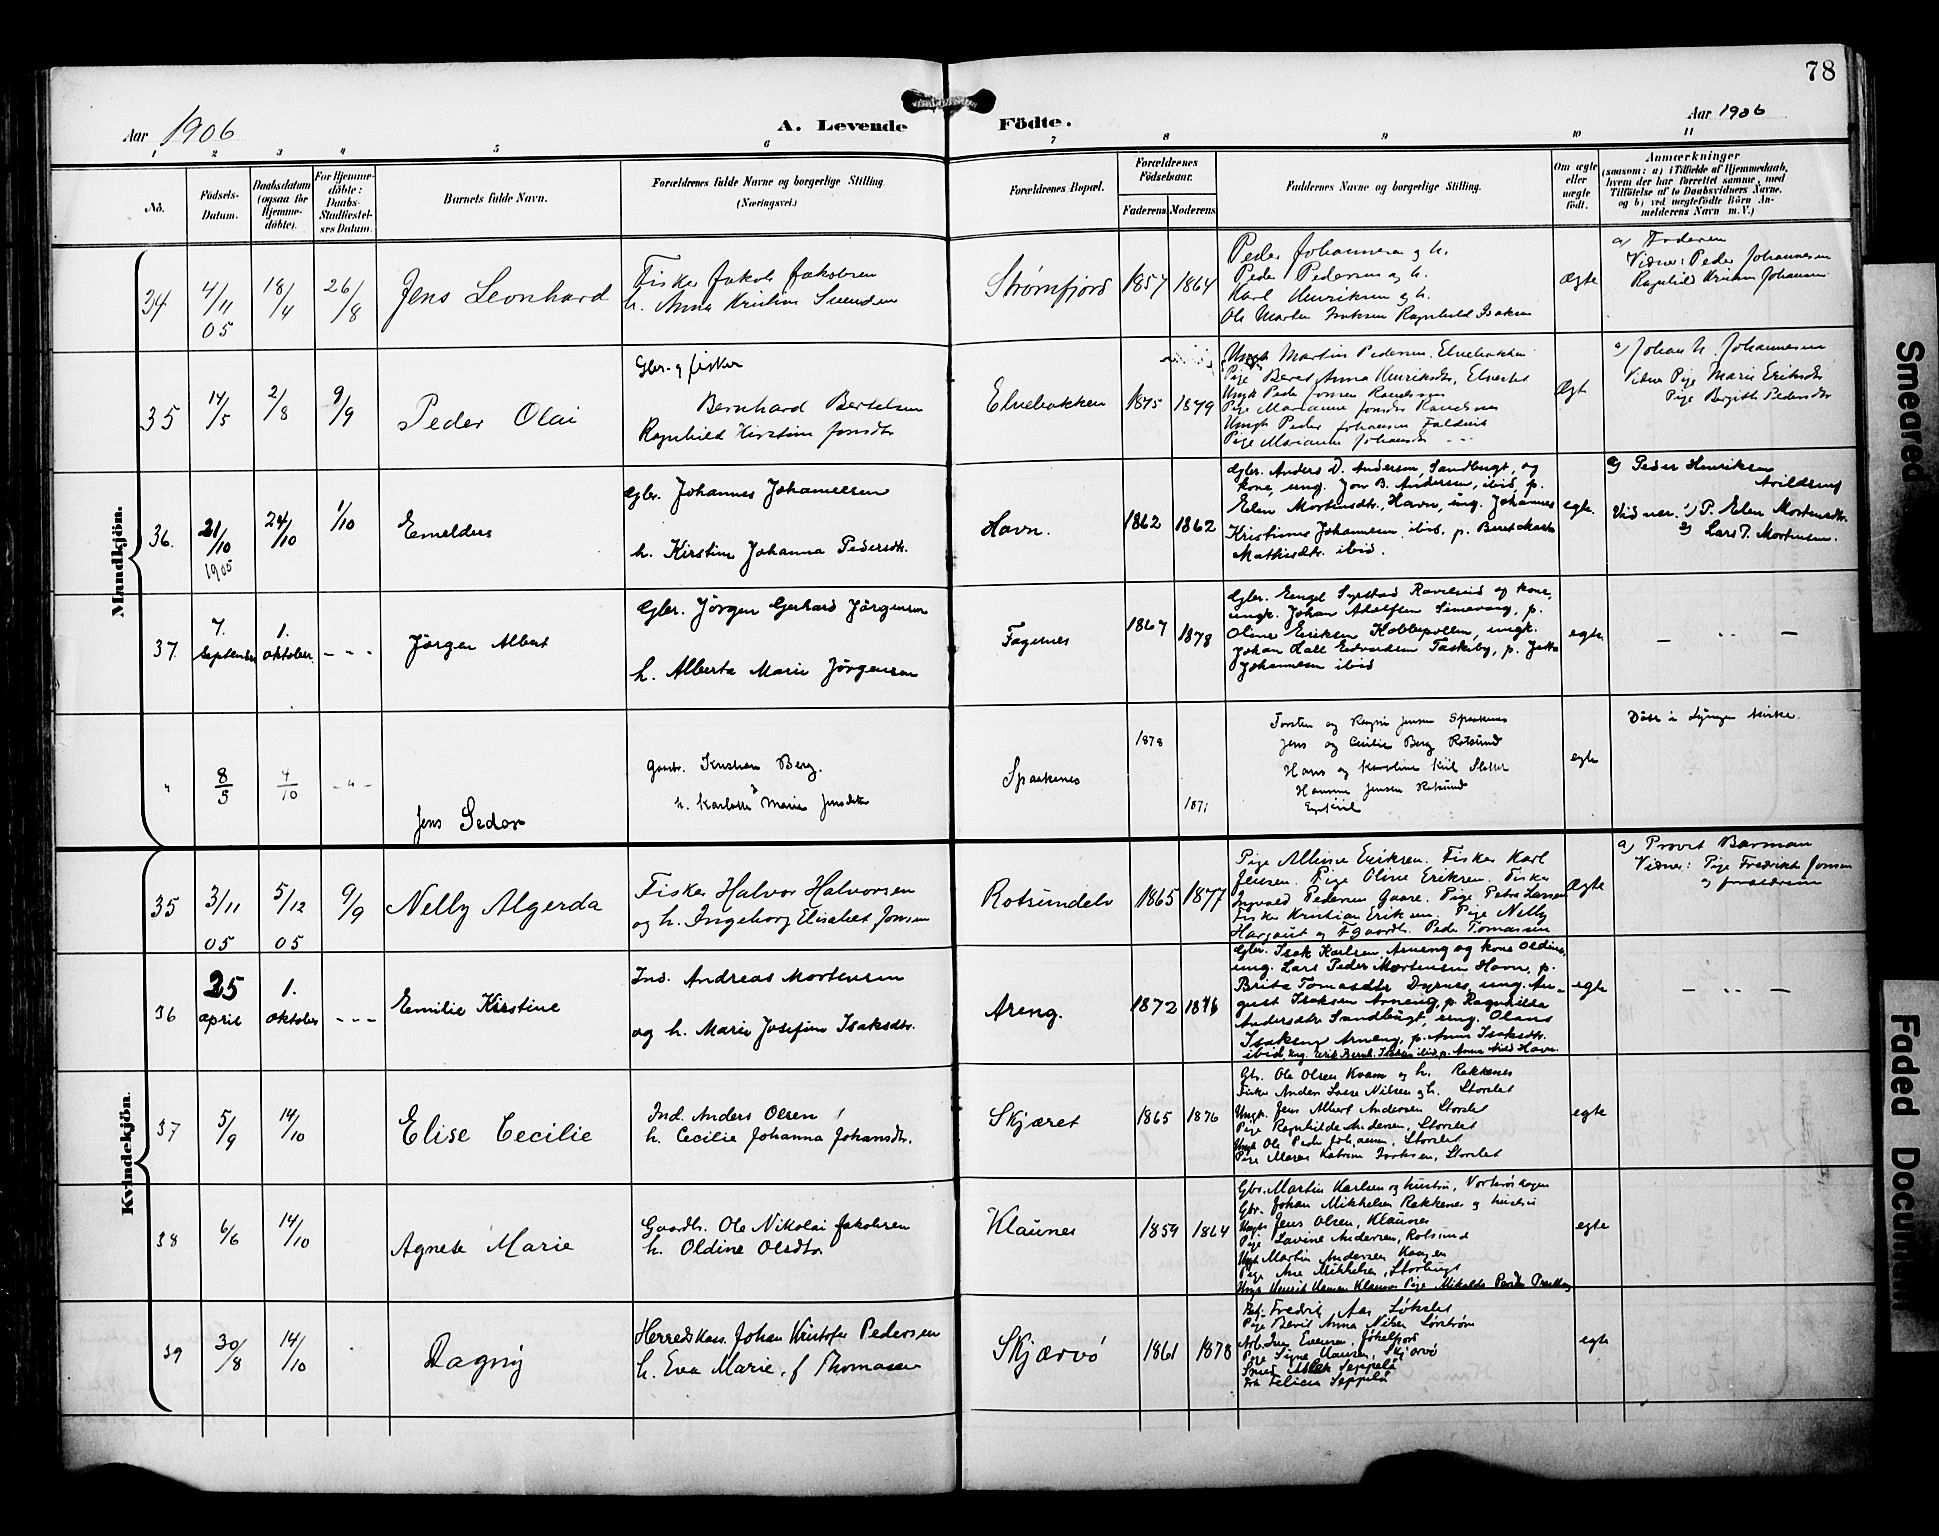 78
Aar 1906
A. Levende Födte.
Aar 1906
1 2 3 4 5 6 7 8 9 10 11
No.
Födsels-Datum.
Daabsdatum (ogsaa for Hjemmedöbte).
For Hjemmedöbte: Daabs-Stadfæstelses Datum.
Barnets fulde Navn.
Forældrenes fulde Navne og borgerlige Stilling.
(Næringsvei.)
Forældrenes Bopæl.
Forældrenes Födselsaar.
Faderens. Moderens.
Faddernes Navne og borgerlige Stilling.
Om ægte eller uægte födt.
Anmærkninger
(saasom: a) i Tilfælde af Hjemmedaab,
hvem der har forrettet samme, med
Tilföielse af to Daabsvidners Navne,
og b) ved uægtefödte Börn An-
melderens Navn m. V.)
Mandkjön.
34 4/11 05 18/4 26/8 Jens Leonhard
Fisker Jakob Jakobsen
h. Anna Kristine
Strømfjord 1857 1864
Peder Johannesen og h.
Peder Pedersen og h.
Karl Henriksen og h.
Ole Martin Isaksen Ragnhild Isaksen
Ægte
a) Faderen
Vidner: Peder Johannesen
Ragnhild Kristine Johansen
35 14/5 2/8 9/9 Peder Olai
Gbr. og fisker
Bernhard Bertelsen
Ragnhild Kirstine Jonsdtr
Elvebakken 1875 1879
Ungk Martin Pedersen, Elvebakken
Pige Beret Anna Henriksdtr,
Ungk Peder Jonsen
Pige Marianne Jonsdtr
Ungk Peder Johansen
Pige Marianne Johansdtr
Ægt
a) Johan H. Johannesen
Vidner Pige Marie Eriksdtr
Pige Birgitte Pedersdtr
36. 21/10 1905 24/10 1/10 Emeldus
Gbr. Johannes Johannessen
h. Kirstine Johanna Pedersdtr.
Havn. 1862 1862
Gbr. Anders D. Andersen, Sandbugt, og
kone, ung. Jon B. Andersen, ibid, p.
Elen Mortensdtr, Havn, ung. Johannes
Kristinus Johannesen, ibid, p. Beret Marta
Mathisdtr. ibid.
egte.
a) Peder Henriksen
Vidner. 1) P. Elen Mortensdtr.
2) Lars P. Mortensen.
37. 7. September 1. oktober. - - - Jörgen Albert
Gbr. Jörgen Gerhard Jörgensen
h. Alberta Marie Jörgensen
Fagernes 1867 1878
Gbr. Engel Syrstad Ravelseid og kone,
ungk. Johan Adolfsen Simavaag, p.
Oline Eriksen Kobbepollen, ungk.
Johan Hall Edvardsen Taskeby, p.
Johannesen ibid
egte
— " —
" 8/5 4/10 - " - Jens Sedor
Gaardbr. Kristian Berg.
h. Karlotte Marie Jensdtr
Spaakenes 1878 1871
Torsten og Jensen Spaakenes
Jens og Cecilie Berg Rotsund
Hans og Karoline Kiil
Hanna Jensen Rotsund
egte
Döbt i Lyngen kirke.
Kvindekjön.
35 3/11 05 5/12 05 9/9 Nelly Algerda
Fisker Halvor Halvorsen
og h. Ingeborg Elisabet Jonsen
Rotsundelv 1865 1877
Pige Albine Eriksen. Fisker Karl
Jensen. Pige Oline Eriksen. Fisker
Ingvald Pedersen Gaare. Pige Petra Larsen
Fisker Kristian Eriksen. Pige Nelly
Peder Tomassen
Ægte
a) Provst Barman
Vidner: Pige Fredrikke Jonsen
og forældrene
36 25 april 1. oktober - - - Emilie Kirstine
Ind. Andreas Mortensen
og h. Marie Josefine Isaksdtr.
Areng. 1872 1876
Gbr. Isak Karlsen, Arneng og kone Oldine,
ung. Lars Peder Mortensen Havn, p.
Brita Tomasdtr Dyrnes, ung. Au-
gust Isaksen Arneng, p. Ragnhilda
Andersdtr Sandbugt, ung. Olaus
Isaksen Arneng, p. Anna Isaksdtr.
ibid, ung. Erik Bernh. Isaksen ibid, p. Anna Havn.
egte
— " —
37 5/9 14/10 Elise Cecilie
Ind. Anders Olsen
h. Cecilie Johanna Johansdtr.
Skjæret 1865 1876
Gbr. Ole Olsen Kvam og h. Rakkenes
Fisker Anders Nilsen og h. Storslet
Ungk. Jens Albert Andersen Storslet
Pige Ragnhilde Andersen, Storslet
Ungk Ole Peder Johansen, Storslet
Pige Maren Katrine Isaksen, Storslet
egte
38 6/6 14/10 Agnete Marie
Gaardbr. Ole Nikolai Jakobsen
h. Oldine Olsdtr
Klaunes 1859 1864
Gbr. Martin Karlsen og hustru, Vorteröskagen
Gbr. Johan Mikkelsen Rakkenes og hustru
Ungk Jens Olsen, Klaunes
Pige Lavine Andersen, Rotsund
Ungk Martin Andersen Kaagen
Pige Ane Mikkelsen, Storbugt
Ungk Henrik Hansen Klaunes Pige Mikalda
egte
39 30/8 14/10 Dagny
Herredskass. Johan Kristofer Pedersen
h. Eva Marie, f Thomassen
Skjærvö 1861 1878
Fredrik Aas Løkslet
Pige Berit Anna Nilsen
Arb. Evensen, Jökelfjord
Pige Signe Hansen, Skjærvö
Smed Seppälä
Fru Felicia Seppälä
egte
Smeared
Faded Document